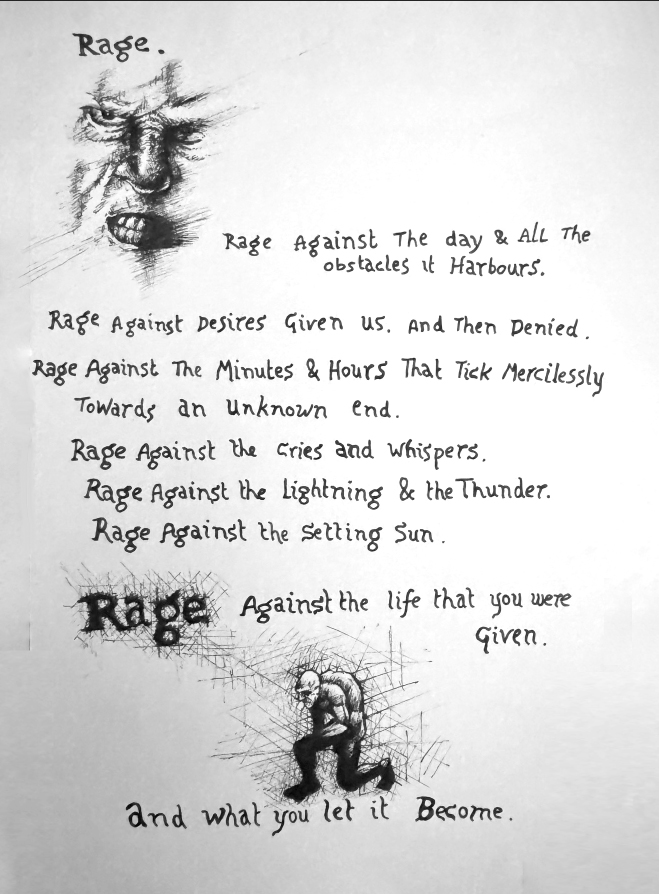 Rage.
Rage Against The day & All The
obstacles it Harbours.
Rage Against Desires Given us, And Then Denied.
Rage Against The Minutes & Hours That Tick Mercilessly
Towards an unknown end.
Rage Against the cries and whispers.
Rage Against the Lightning & the Thunder.
Rage Against the setting Sun.
Rage Against the life that you were
Given.
and what you let it Become.